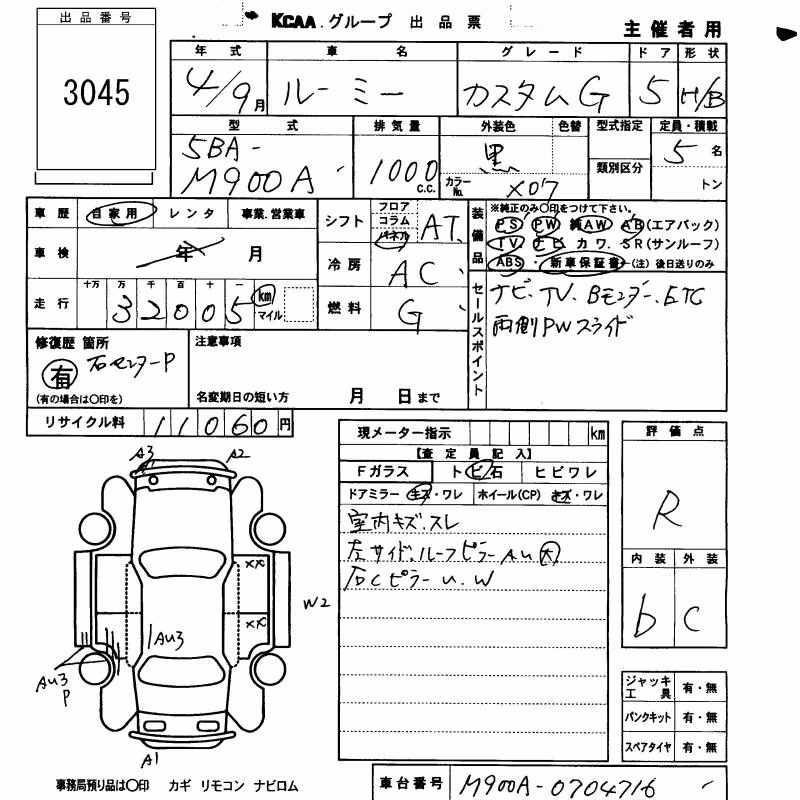 出品番号
3045
KCAA.グループ 出品票
主催者用
年式 車名 グレード ドア 形状
4/9月 ルーミー カスタムG 5 H/B
型式 排気量 外装色 色替 型式指定 定員・積載
5BA-
M900A 1000 C.C. 黒 類別区分 5名
カラーNo. X07 トン
車歴 自家用 レンタ 事業.営業車
シフト フロア コラム パネル AT
装備品 ※純正のみ〇印をつけて下さい。
PS PW 純AW AB(エアバック)
TV ナビ カワ. SR(サンルーフ)
ABS・新車保証書(注) 後日送りのみ
車検 年 月
冷房 AC
走行 十万 万 千 百 十 一
32005 km マイル
燃料 G
セールスポイント
ナビ.TV.Bモニター.ETC
両側PWスライド
修復歴 箇所
有 右センターP
(有の場合は〇印を)
注意事項
名変期日の短い方 月 日まで
リサイクル料 11060円
現メーター指示 km
【査定員記入】
Fガラス トビ石 ヒビワレ
ドアミラー キズ・ワレ ホイール(CP) キズ・ワレ
室内キズ.スレ
左サイド.ルーフピラーAU大
右Cピラーu.W
評価点
R
内装 外装
b C
A3 A2
XX
XX
W2
AU3
AU3
P
A1
ジャッキ工具 有・無
パンクキット 有・無
スペアタイヤ 有・無
事務局預り品は〇印 カギ リモコン ナビロム
車台番号 M900A-0704716